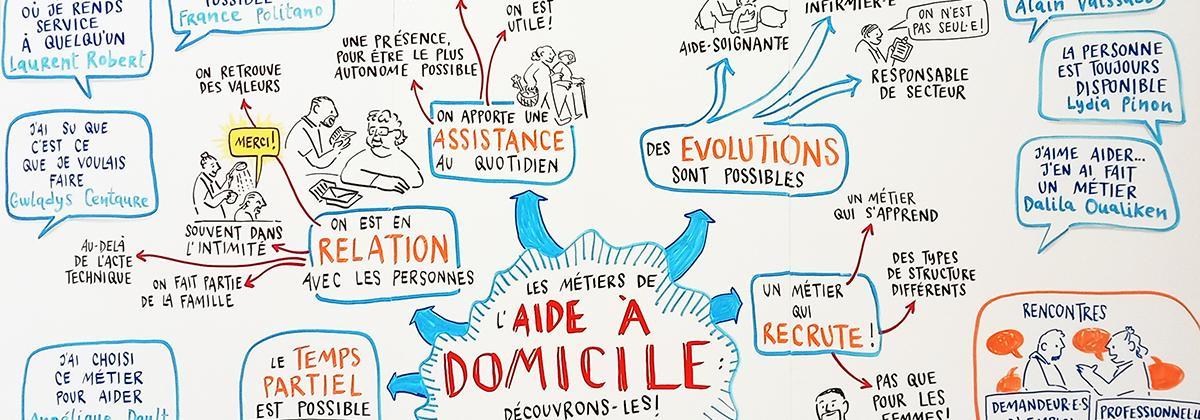 OÙ JE RENDS
SERVICE
À QUELQU'UN
Laurent Robert
France Politano
J'AI SU QUE
C'EST CE
QUE JE VOULAIS
FAIRE
Gwladys Centaure
J'AI CHOISI
CE MÉTIER
POUR AIDER
ON RETROUVE
DES VALEURS
MERCI!
SOUVENT DANS
L'INTIMITÉ
AU-DELÀ
DE L'ACTE
TECHNIQUE
ON FAIT PARTIE
DE LA FAMILLE
ON EST EN
RELATION
AVEC LES PERSONNES
LE TEMPS
PARTIEL
EST POSSIBLE
UNE PRÉSENCE,
POUR ÊTRE LE PLUS
AUTONOME POSSIBLE
ON EST
UTILE!
ON APPORTE UNE
ASSISTANCE
AU QUOTIDIEN
LES MÉTIERS DE
L'AIDE À
DOMICILE:
DÉCOUVRONS-LES!
DES EVOLUTIONS
SONT POSSIBLES
AIDE-SOIGNANTE
INFIRMIER·E
ON N'EST
PAS SEUL·E!
RESPONSABLE
DE SECTEUR
UN MÉTIER
QUI
RECRUTE!
UN MÉTIER
QUI S'APPREND
DES TYPES
DE STRUCTURE
DIFFÉRENTS
PAS QUE
POUR LES
FEMMES!
LA PERSONNE
EST TOUJOURS
DISPONIBLE
Lydia Pinon
J'AIME AIDER...
J'EN AI FAIT
UN MÉTIER
Dalila Oualiken
RENCONTRES
DEMANDEUR·E·S